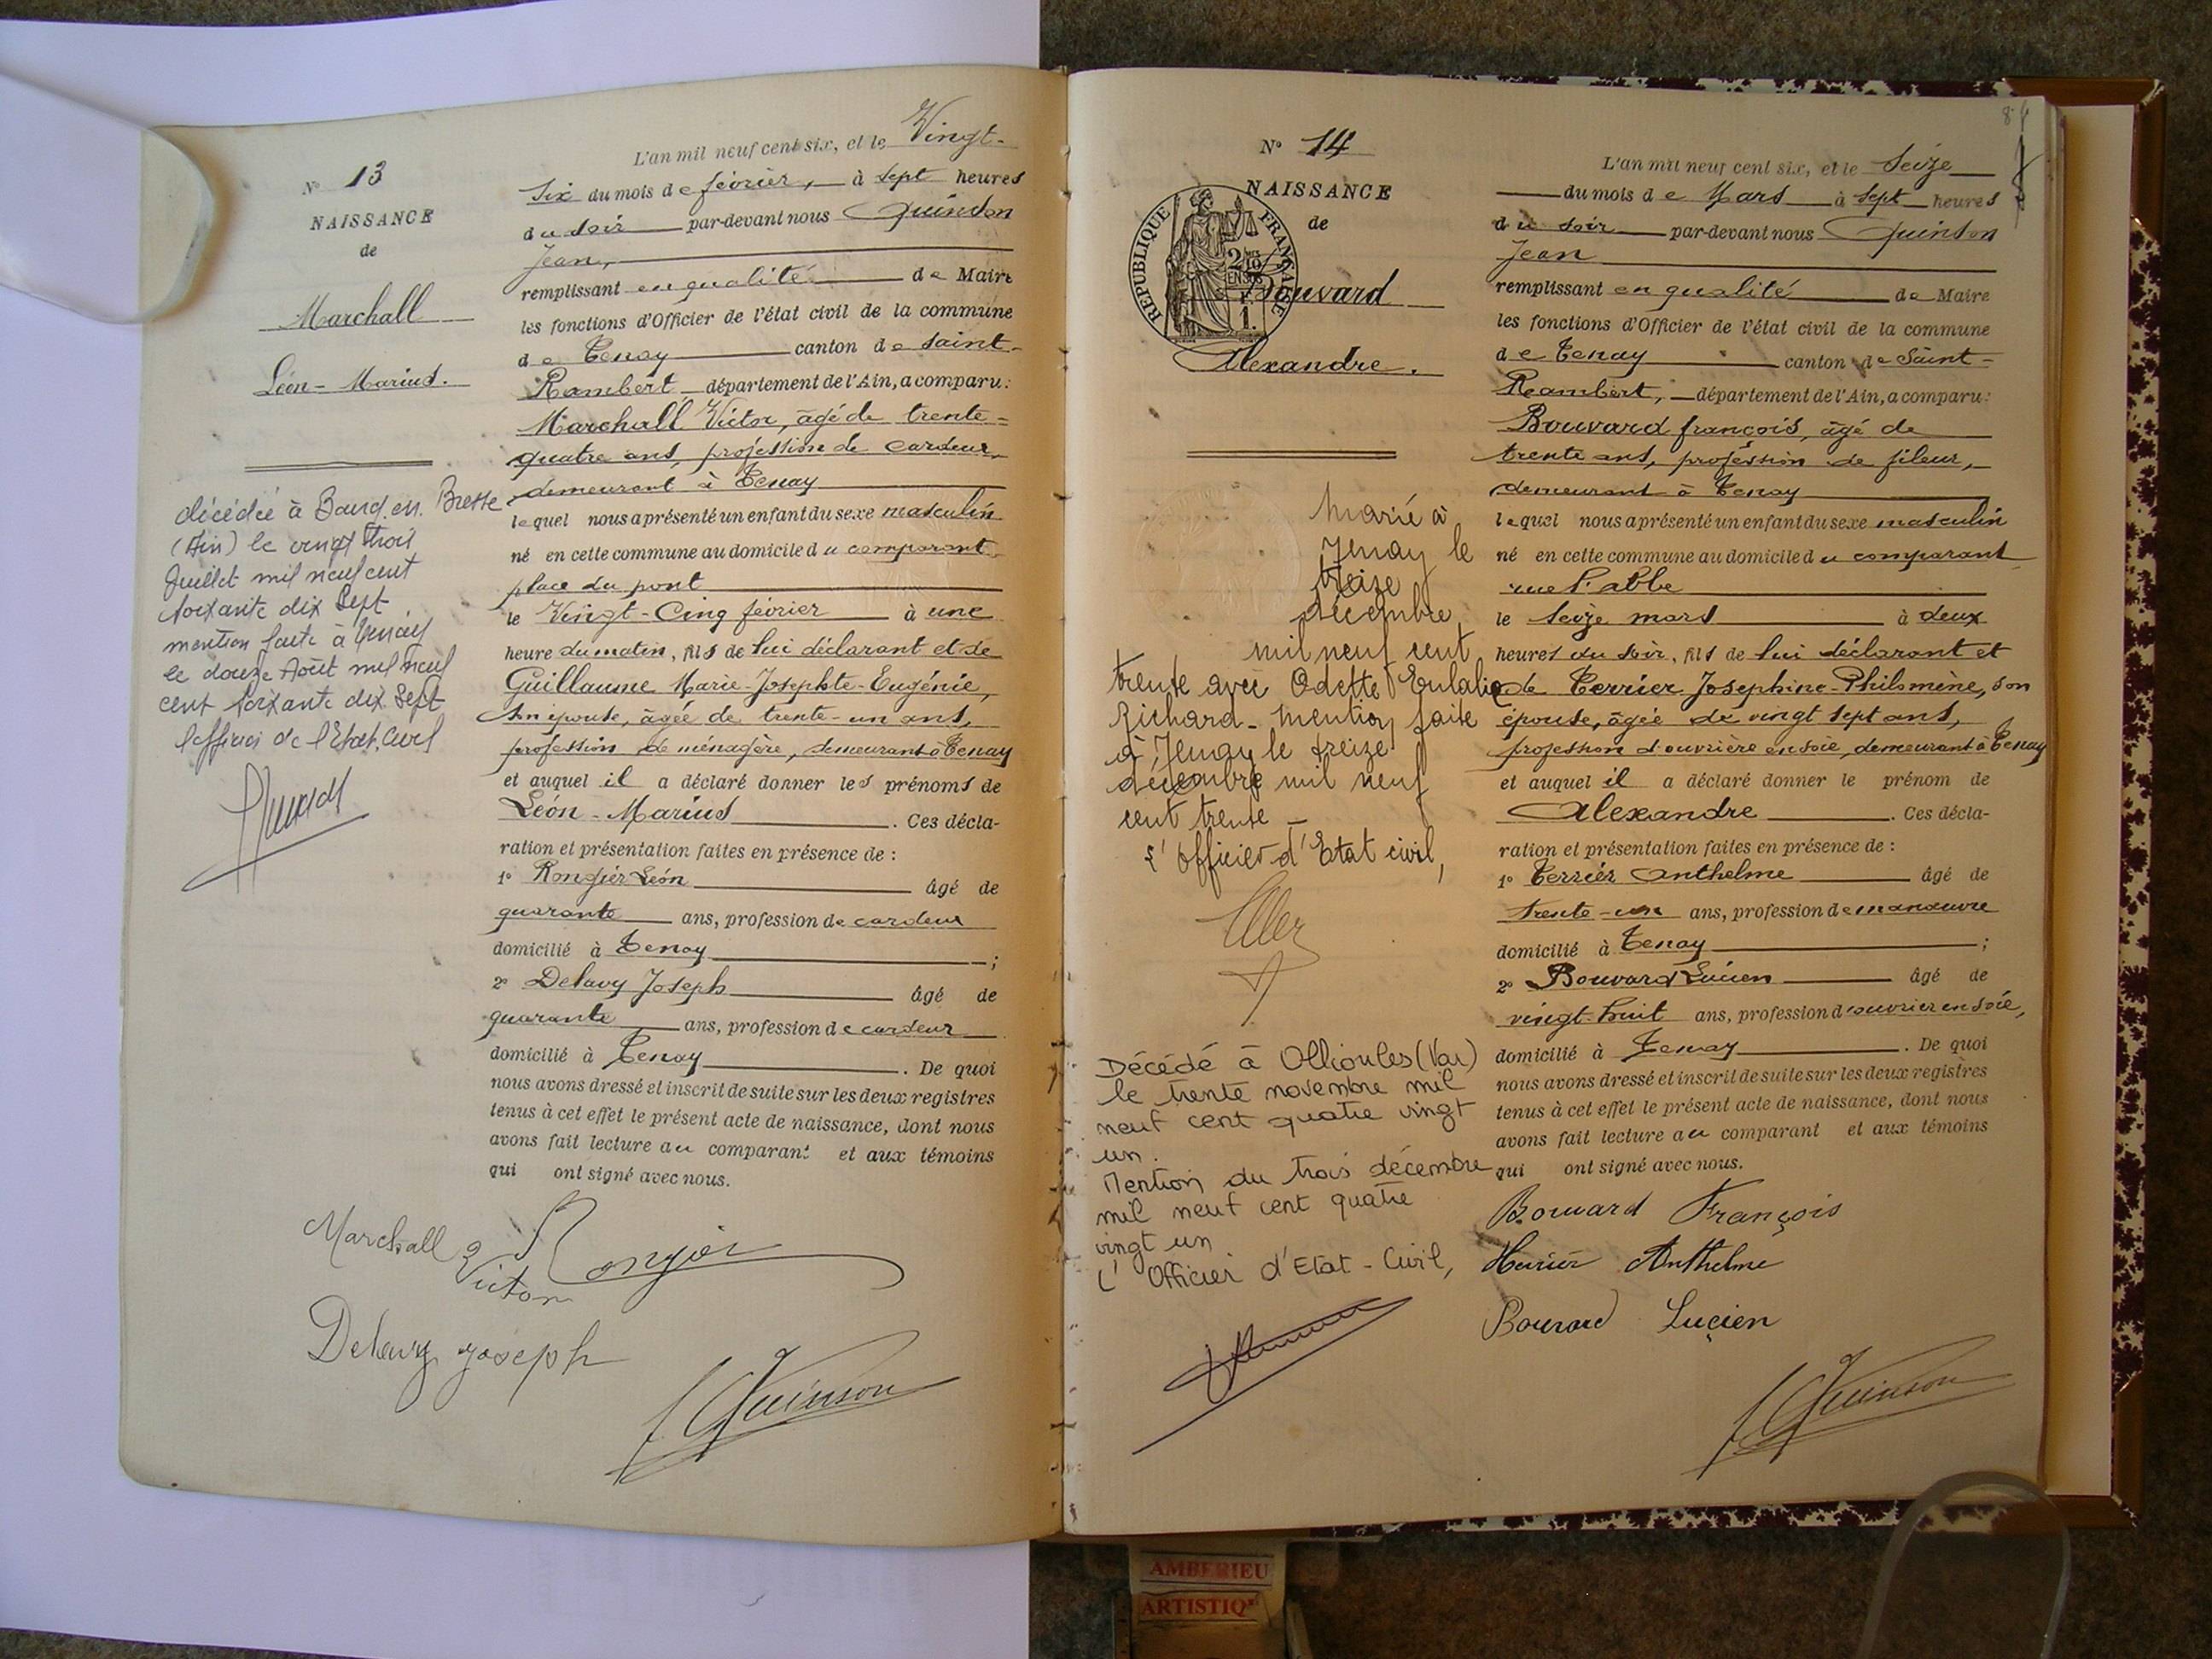 N° 13
NAISSANCE
de
Marchall
Léon-Marius.
décédé à Bourg.en.Bresse
(Ain) le vingt trois
Juillet mil neuf cent
soixante dix Sept
mention faite à Tenay
le douze Août mil neuf
cent soixante dix Sept
l'officier de l'Etat.Civil
L'an mil neuf cent six, et le Vingt-
six du mois de février, à sept heures
du soir par-devant nous Quinson
Jean,
remplissant en qualité de Maire
les fonctions d'Officier de l'état civil de la commune
de Tenay canton de Saint-
Rambert département de l'Ain, a comparu:
Marchall Victor, âgé de trente-
quatre ans, profession de cardeur,
demeurant à Tenay
lequel nous a présenté un enfant du sexe masculin
né en cette commune au domicile du comparant
place du pont
le Vingt-Cinq février à une
heure du matin, fils de lui déclarant et de
Guillaume Marie-Josephte-Eugénie,
son épouse, âgée de trente-un ans,
profession de ménagère, demeurant à Tenay
et auquel il a déclaré donner les prénoms de
Léon-Marius. Ces décla-
ration et présentation faites en présence de :
1° Rongier Léon âgé de
quarante ans, profession de cardeur
domicilié à Tenay ;
2° Delavy Joseph âgé de
quarante ans, profession de cardeur
domicilié à Tenay. De quoi
nous avons dressé et inscrit de suite sur les deux registres
tenus à cet effet le présent acte de naissance, dont nous
avons fait lecture au comparant et aux témoins
qui ont signé avec nous.
Marchall Victor
Rongier
Delavy joseph
J Quinson
N° 14
NAISSANCE
de
REPUBLIQUE FRANÇAISE
2/10 EN SUS
1.
Bouvard
Alexandre.
Marié à
Tenay le
treize
décembre
mil neuf cent
trente avec Odette Eulalie
Richard_ Mention faite
à Tenay le treize
décembre mil neuf
cent trente _
L'Officier d'Etat civil,
Décédé à Ollioules (Var)
le trente novembre mil
neuf cent quatre vingt
un.
Mention du trois décembre
mil neuf cent quatre
vingt un
L'Officier d'Etat-Civil,
L'an mil neuf cent six, et le Seize
du mois de Mars à sept heures
du soir par-devant nous Quinson
Jean
remplissant en qualité de Maire
les fonctions d'Officier de l'état civil de la commune
de Tenay canton de Saint-
Rambert, département de l'Ain, a comparu:
Bouvard françois, âgé de
trente ans, profession de fileur,
demeurant à Tenay
lequel nous a présenté un enfant du sexe masculin
né en cette commune au domicile du comparant
rue
le Seize mars à deux
heures du soir, fils de lui déclarant et
de Terrier Josephine-Philomène, son
épouse, âgée de vingt sept ans,
profession d'ouvrière en soie, demeurant à Tenay
et auquel il a déclaré donner le prénom de
Alexandre. Ces décla-
ration et présentation faites en présence de :
1° Terrier Anthelme âgé de
trente-un ans, profession de manœuvre
domicilié à Tenay ;
2° Bouvard Lucien âgé de
vingt-huit ans, profession d'ouvrier en soie,
domicilié à Tenay. De quoi
nous avons dressé et inscrit de suite sur les deux registres
tenus à cet effet le présent acte de naissance, dont nous
avons fait lecture au comparant et aux témoins
qui ont signé avec nous.
Bouvard François
Anthelme
Bouvard Luçien
J Quinson
AMBERIEU
ARTISTIQ